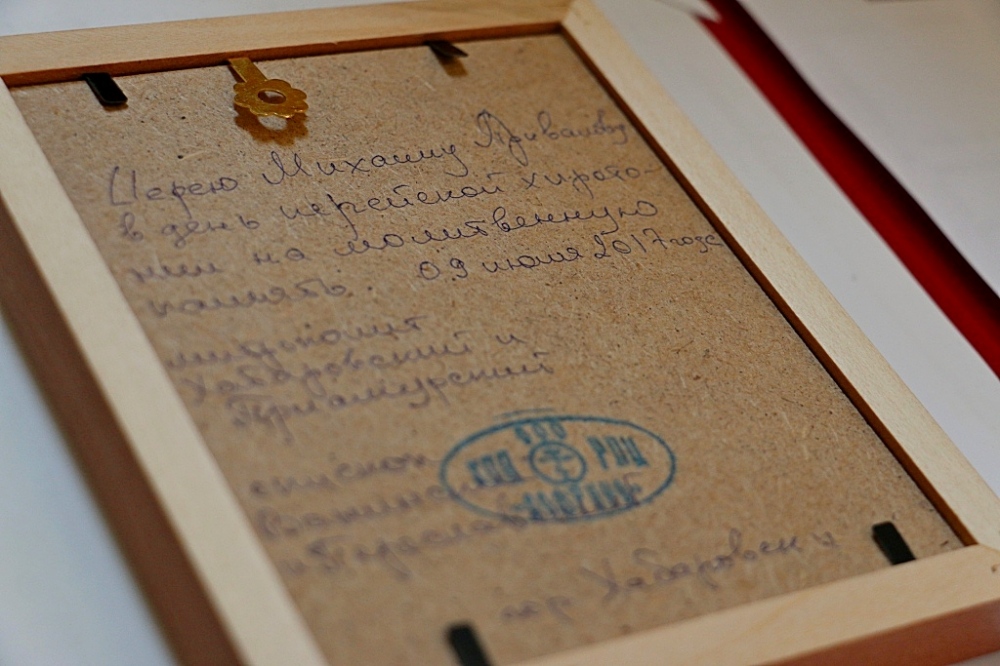 Иерею Михаилу Привалову
в день иерейской хирото-
нии на молитвенную
память. 09 июля 2017 года
митрополит
Хабаровский и
Приамурский
епископ
Ванинс
и Переяслав
ХПД РПЦ
гор Хабаровск